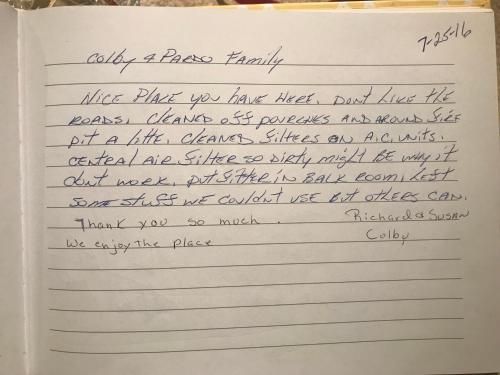 7-25-16
Colby & PARDO Family
NICE PLACE you HAVE HERE. DONT LIKE THE
ROADS. CLEANED off POURCHES AND AROUND FIRE
PIT A little. CLEANED FILTERS ON A.C. UNITS.
CENTRAL AIR FILTER SO DIRTY might BE why IT
DONT WORK. PUT FILTER IN BACK ROOM. LEFT
SOME STUFF WE COULDNT USE BUT OTHERS CAN.
Thank you so much .
Richard & SUSAN
We enjoy The place
Colby